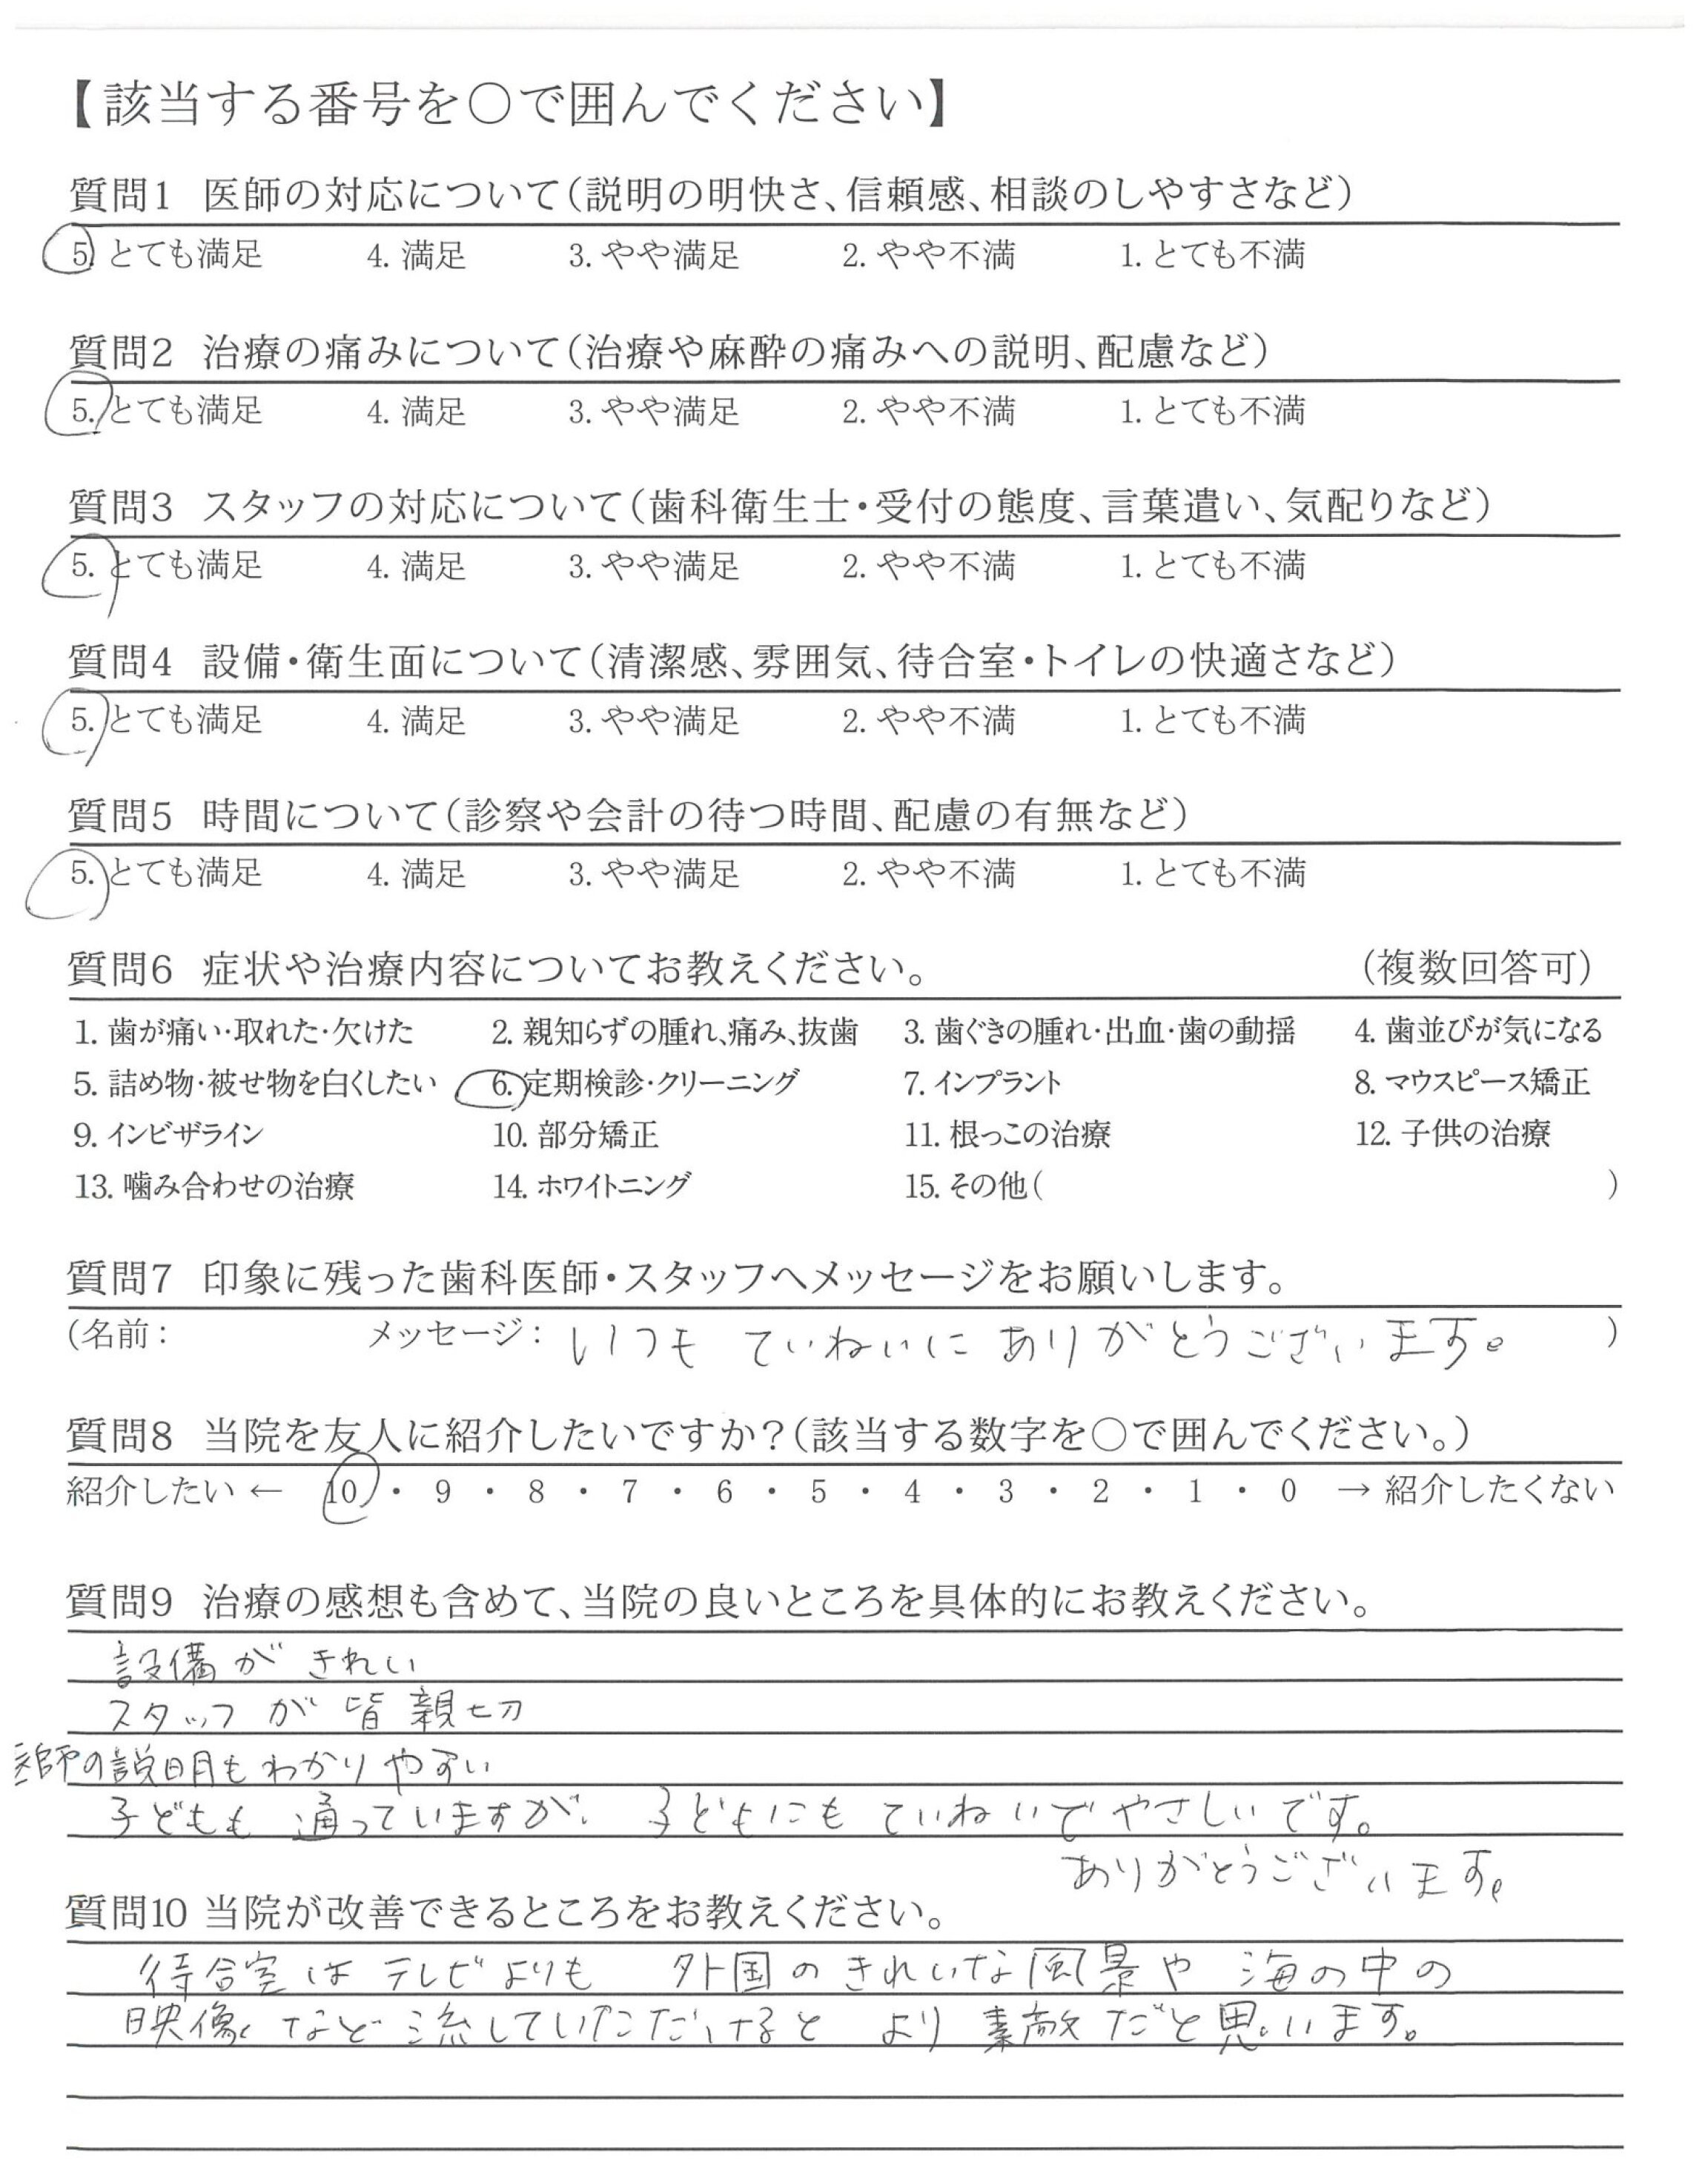 【該当する番号を○で囲んでください】
質問1 医師の対応について（説明の明快さ、信頼感、相談のしやすさなど）
5. とても満足 4. 満足 3. やや満足 2. やや不満 1. とても不満
質問2 治療の痛みについて（治療や麻酔の痛みへの説明、配慮など）
5. とても満足 4. 満足 3. やや満足 2. やや不満 1. とても不満
質問3 スタッフの対応について（歯科衛生士・受付の態度、言葉遣い、気配りなど）
5. とても満足 4. 満足 3. やや満足 2. やや不満 1. とても不満
質問4 設備・衛生面について（清潔感、雰囲気、待合室・トイレの快適さなど）
5. とても満足 4. 満足 3. やや満足 2. やや不満 1. とても不満
質問5 時間について（診察や会計の待つ時間、配慮の有無など）
5. とても満足 4. 満足 3. やや満足 2. やや不満 1. とても不満
質問6 症状や治療内容についてお教えください。 （複数回答可）
1. 歯が痛い・取れた・欠けた 2. 親知らずの腫れ、痛み、抜歯 3. 歯ぐきの腫れ・出血・歯の動揺 4. 歯並びが気になる
5. 詰め物・被せ物を白くしたい 6. 定期検診・クリーニング 7. インプラント 8. マウスピース矯正
9. インビザライン 10. 部分矯正 11. 根っこの治療 12. 子供の治療
13. 噛み合わせの治療 14. ホワイトニング 15. その他（ ）
質問7 印象に残った歯科医師・スタッフへメッセージをお願いします。
（名前： メッセージ：いつも ていねいに ありがとうございます。 ）
質問8 当院を友人に紹介したいですか？（該当する数字を○で囲んでください。）
紹介したい ← 10 ・ 9 ・ 8 ・ 7 ・ 6 ・ 5 ・ 4 ・ 3 ・ 2 ・ 1 ・ 0 → 紹介したくない
質問9 治療の感想も含めて、当院の良いところを具体的にお教えください。
設備が きれい
スタッフが 皆 親切
医師の説明もわかりやすい
子どもも 通っていますが、 子どもにも ていねいで やさしいです。
ありがとうございます。
質問10 当院が改善できるところをお教えください。
待合室は テレビよりも 外国の きれいな 風景や 海の中の
映像など 流していただけると より 素敵だと思います。